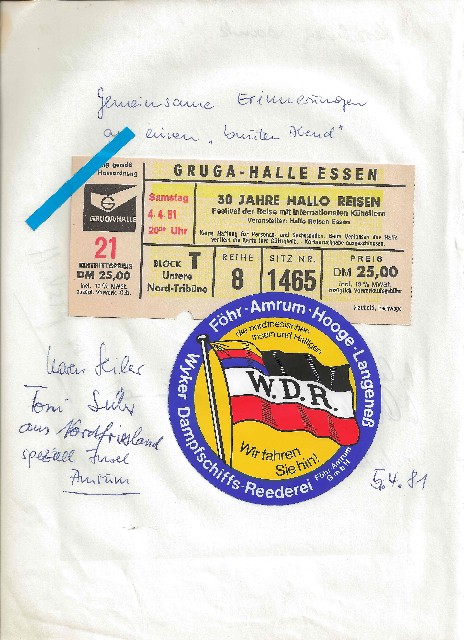 Gemeinsame Erinnerungen
an einen „bunten Abend"
GRUGA-HALLE ESSEN
Hausordnung
GRUGA-HALLE
21
EINTRITTSPREIS
DM 25,00
Samstag
4.4.81
20⁰⁰ Uhr
30 JAHRE HALLO REISEN
Festival der Reise mit internationalen Künstlern
Veranstalter: Hallo Reisen Essen
BLOCK T
Untere
Nord-Tribüne
REIHE
8
SITZ NR.
1465
PREIS
DM 25,00
Föhr-Amrum-Hooge-Langeneß
die nordfriesischen
Inseln und Halligen
W.D.R.
Wir fahren
Sie hin!
Wyker Dampfschiffs-Reederei Föhr-Amrum GmbH
Toni
aus Nordfriesland
speziell Insel
Amrum
5.4.81